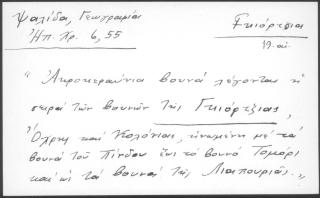 Ψαλίδα, Γεωγραφία
Ἠπ. Χρ. 6, 55
Γκιόρτζια
19 αἰ.
"Ἀκροκεραύνια βουνά λέγονται ἡ
σειρά τῶν βουνῶν τῆς Γκιόρτζιας,
Ὄχρης καί Κολόνιας, ἑνωμένη μέ τά
βουνά τοῦ Πίνδου ἕως τό βουνό Τομόρι
καί ὡς τά βουνά τῆς Λιαπουριᾶς."